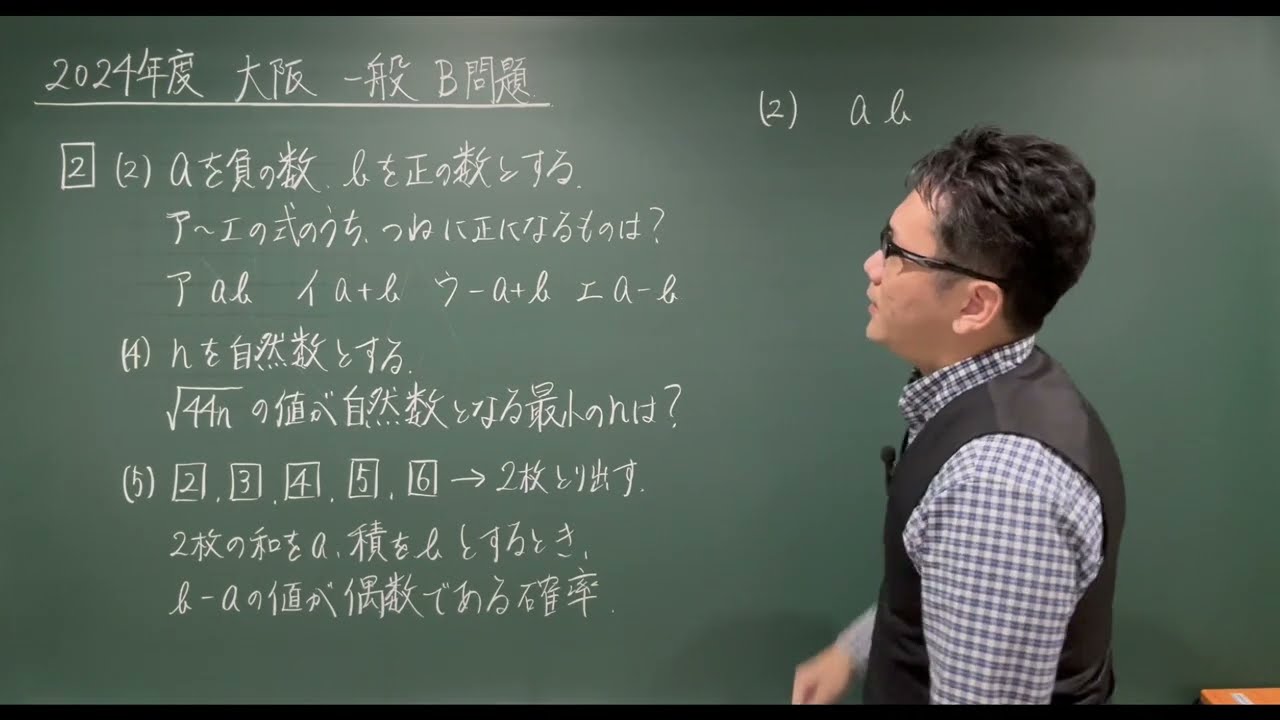 2024年度 大阪 一般 B問題
2 (2) aを負の数、bを正の数とする。
ア～エの式のうち、つねに正になるものは？
ア ab イ a+b ウ -a+b エ a-b
(4) nを自然数とする。
√44n の値が自然数となる最小のnは？
(5) 2, 3, 4, 5, 6 → 2枚とり出す。
2枚の和をa、積をbとするとき、
b-aの値が偶数である確率.
(2) a b